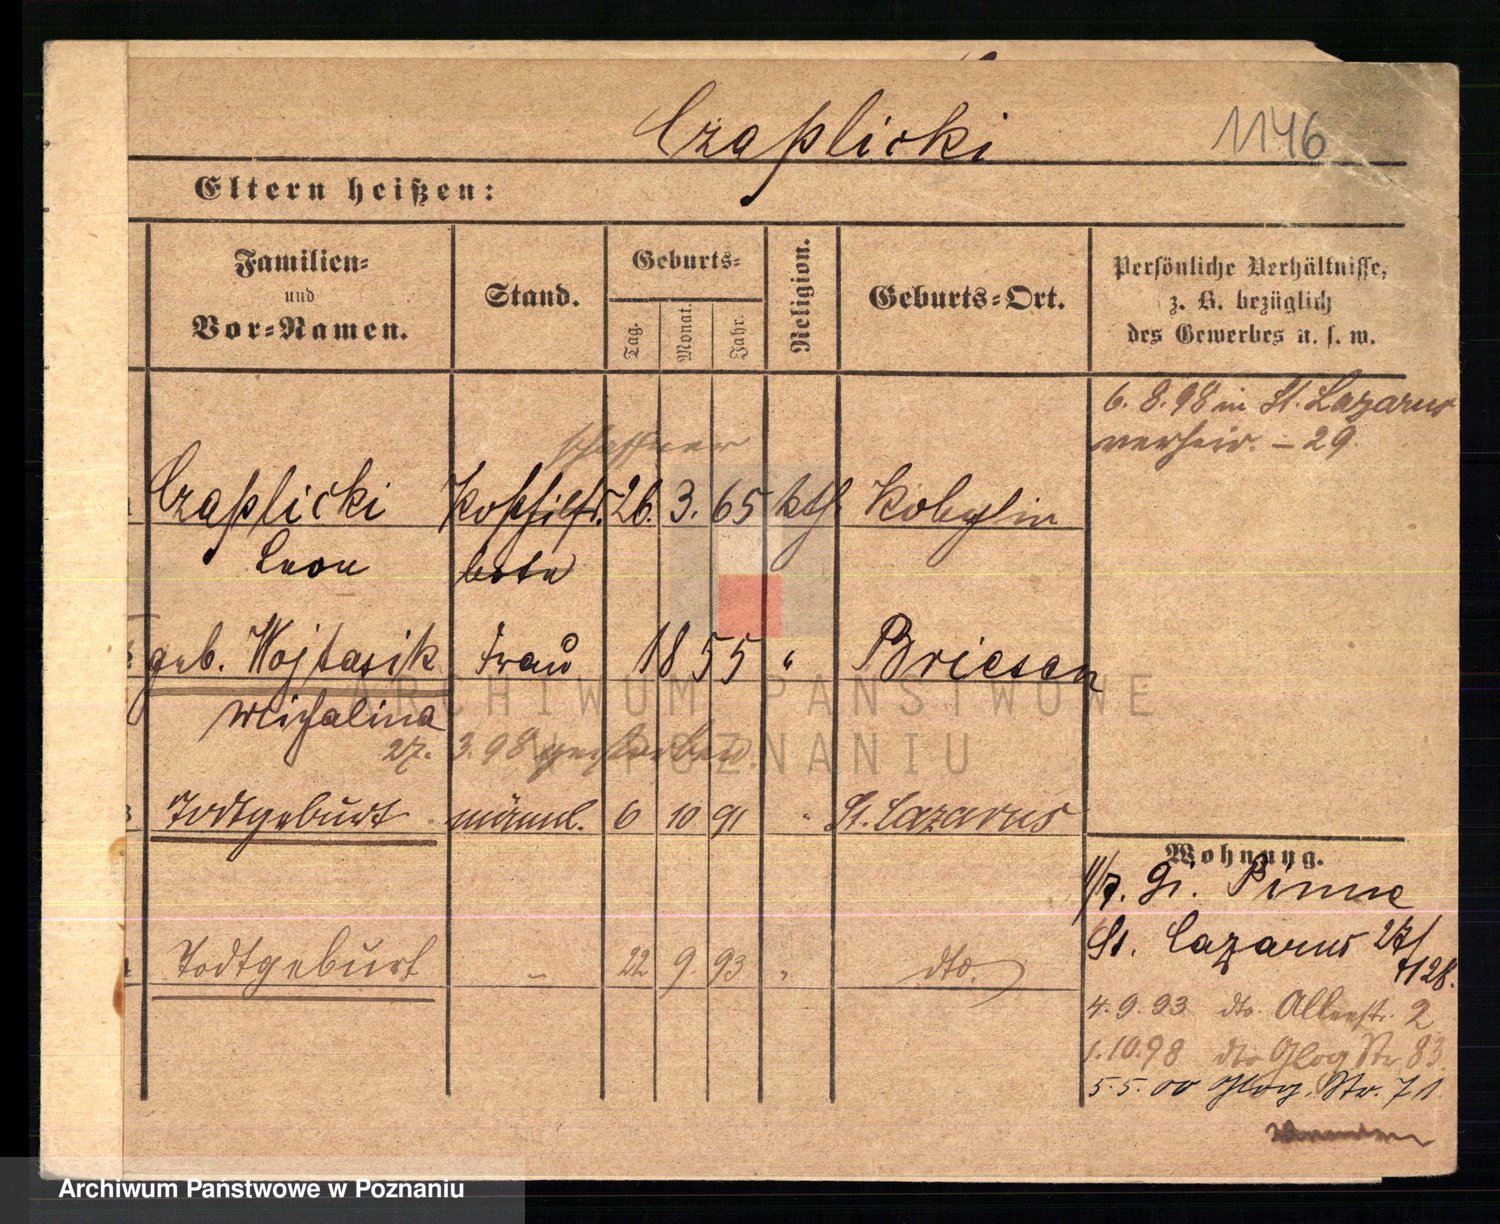 Czaplicki
1146
Eltern heißen:
Familien=
und
Vor=Namen.
Stand.
Geburts=
Tag.
Monat.
Jahr.
Religion.
Geburts=Ort.
Persönliche Verhältnisse,
z. B. bezüglich
des Gewerbes u. s. w.
6. 8. 98 in St. Lazarus
verheir. – 29
schaffner
Czaplicki Posthilfs. 26. 3. 65 kth. Kobylin
Leon bote
geb. Wojtasik Frau 1855 " Briesen
Michalina
27. 3. 98 gestorben.
3 Todtgeburt männl. 6 10 91 " St. Lazarus
4 Todtgeburt – 22 9. 93 " dto.
Wohnung.
11/7. Gr. Pinne
St. Lazarus 27/
4. 9. 93 dto. Allerstr. 2
1. 10. 98 dto Glog Str. 83
5. 5. 00 Glog. Str. 71
ARCHIWUM PAŃSTWOWE
W POZNANIU
Archiwum Państwowe w Poznaniu